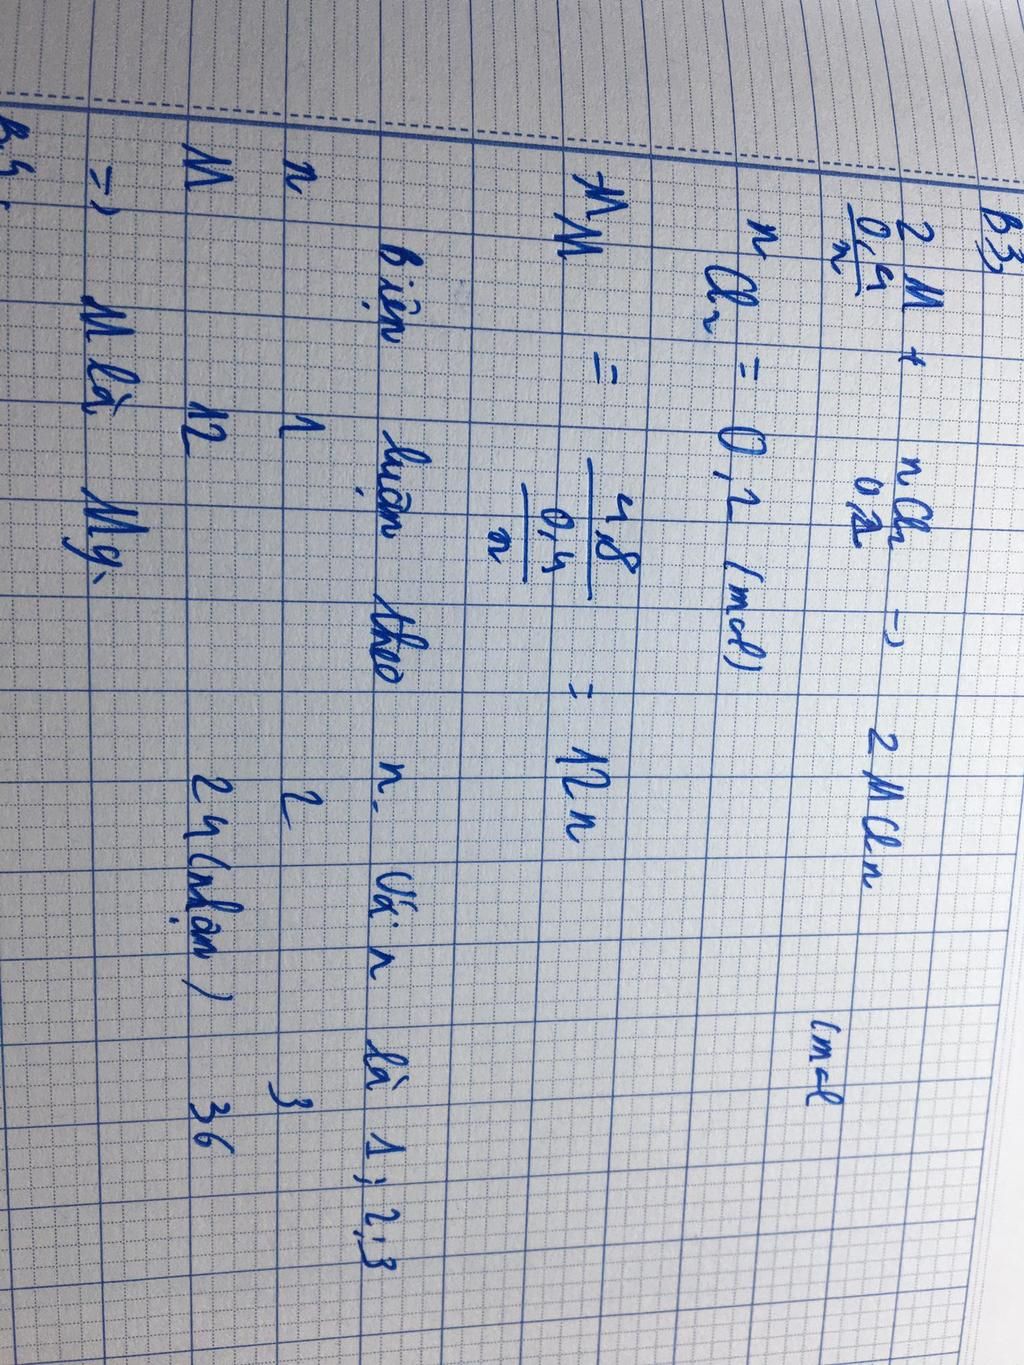 B3,
2 M + nCl₂ → 2 MCln
0,4/n 0,2 (mol
nCl₂ = 0,2 (mol)
MM = 4,8/(0,4/n) = 12n
Biện luận theo n. Với n là 1; 2; 3
n 1 2 3
M 12 24 (nhận) 36
=> M là Mg.
B4,